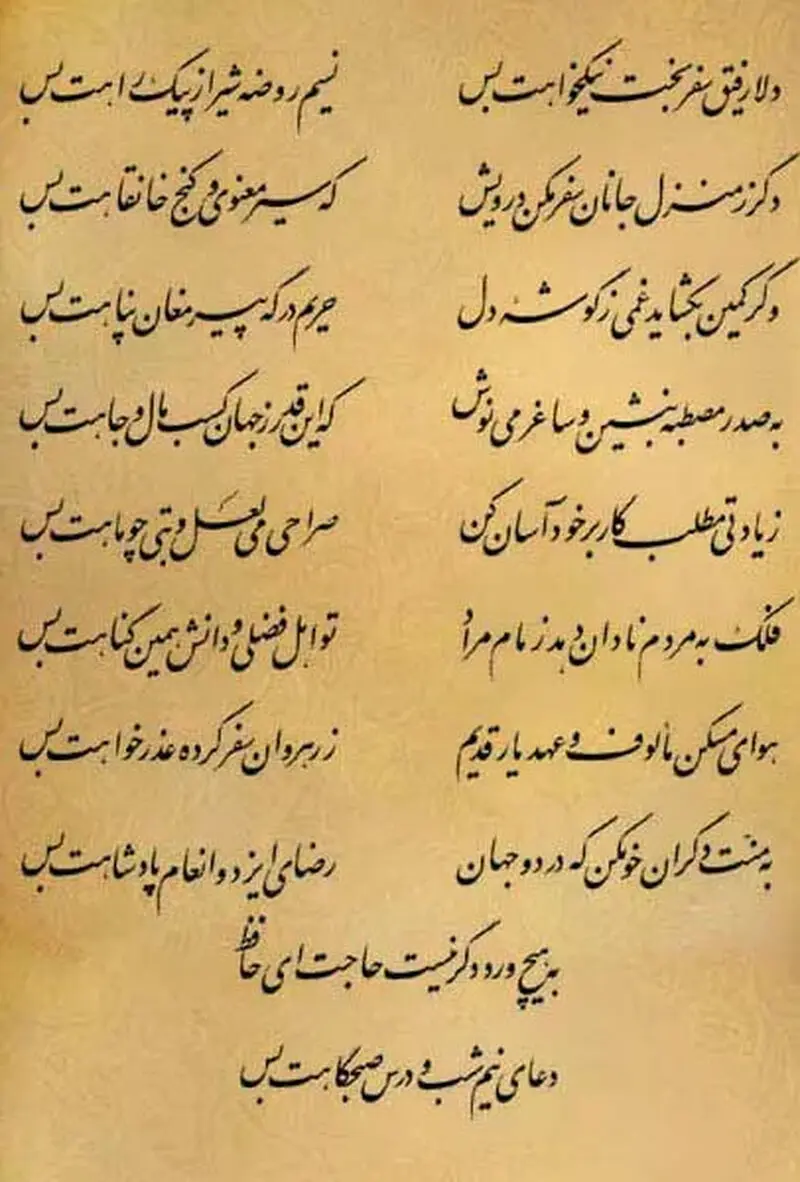 دلا رفیق سفر بخت نیکخواهت بس    نسیم روضه شیراز پیک راهت بس
دگر ز منزل جانان سفر مکن درویش    که سیر معنوی و کنج خانقاهت بس
وگر کمین بگشاید غمی ز گوشه دل    حریم درگه پیر مغان پناهت بس
به صدر مصطبه بنشین و ساغر می نوش    که این قدر ز جهان کسب مال و جاهت بس
زیادتی مطلب کار بر خود آسان کن    صراحی می لعل و بتی چو ماهت بس
فلک به مردم نادان دهد زمام مراد    تو اهل فضلی و دانش همین گناهت بس
هوای مسکن مألوف و عهد یار قدیم    ز رهروان سفر کرده عذرخواهت بس
به منت دگران خو مکن که در دو جهان    رضای ایزد و انعام پادشاهت بس
به هیچ ورد دگر نیست حاجت ای حافظ
دعای نیم شب و درس صبحگاهت بس